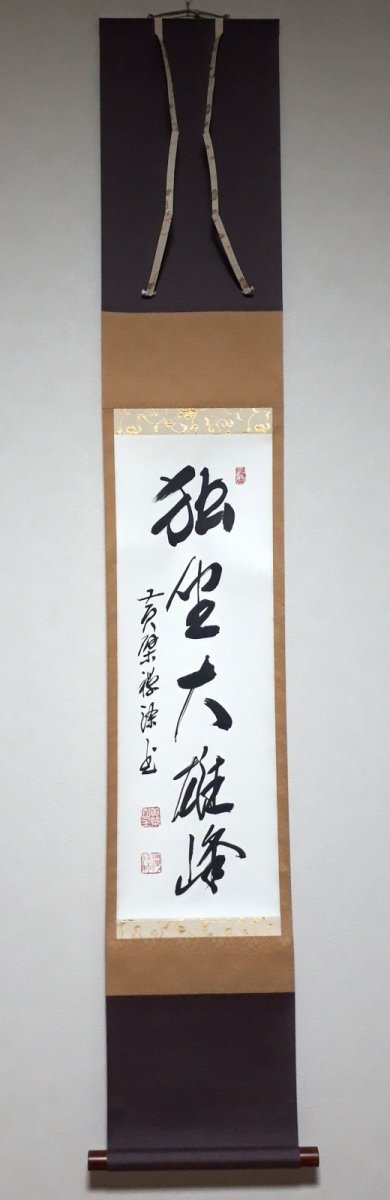 独坐大雄峰
黄檗禅深書